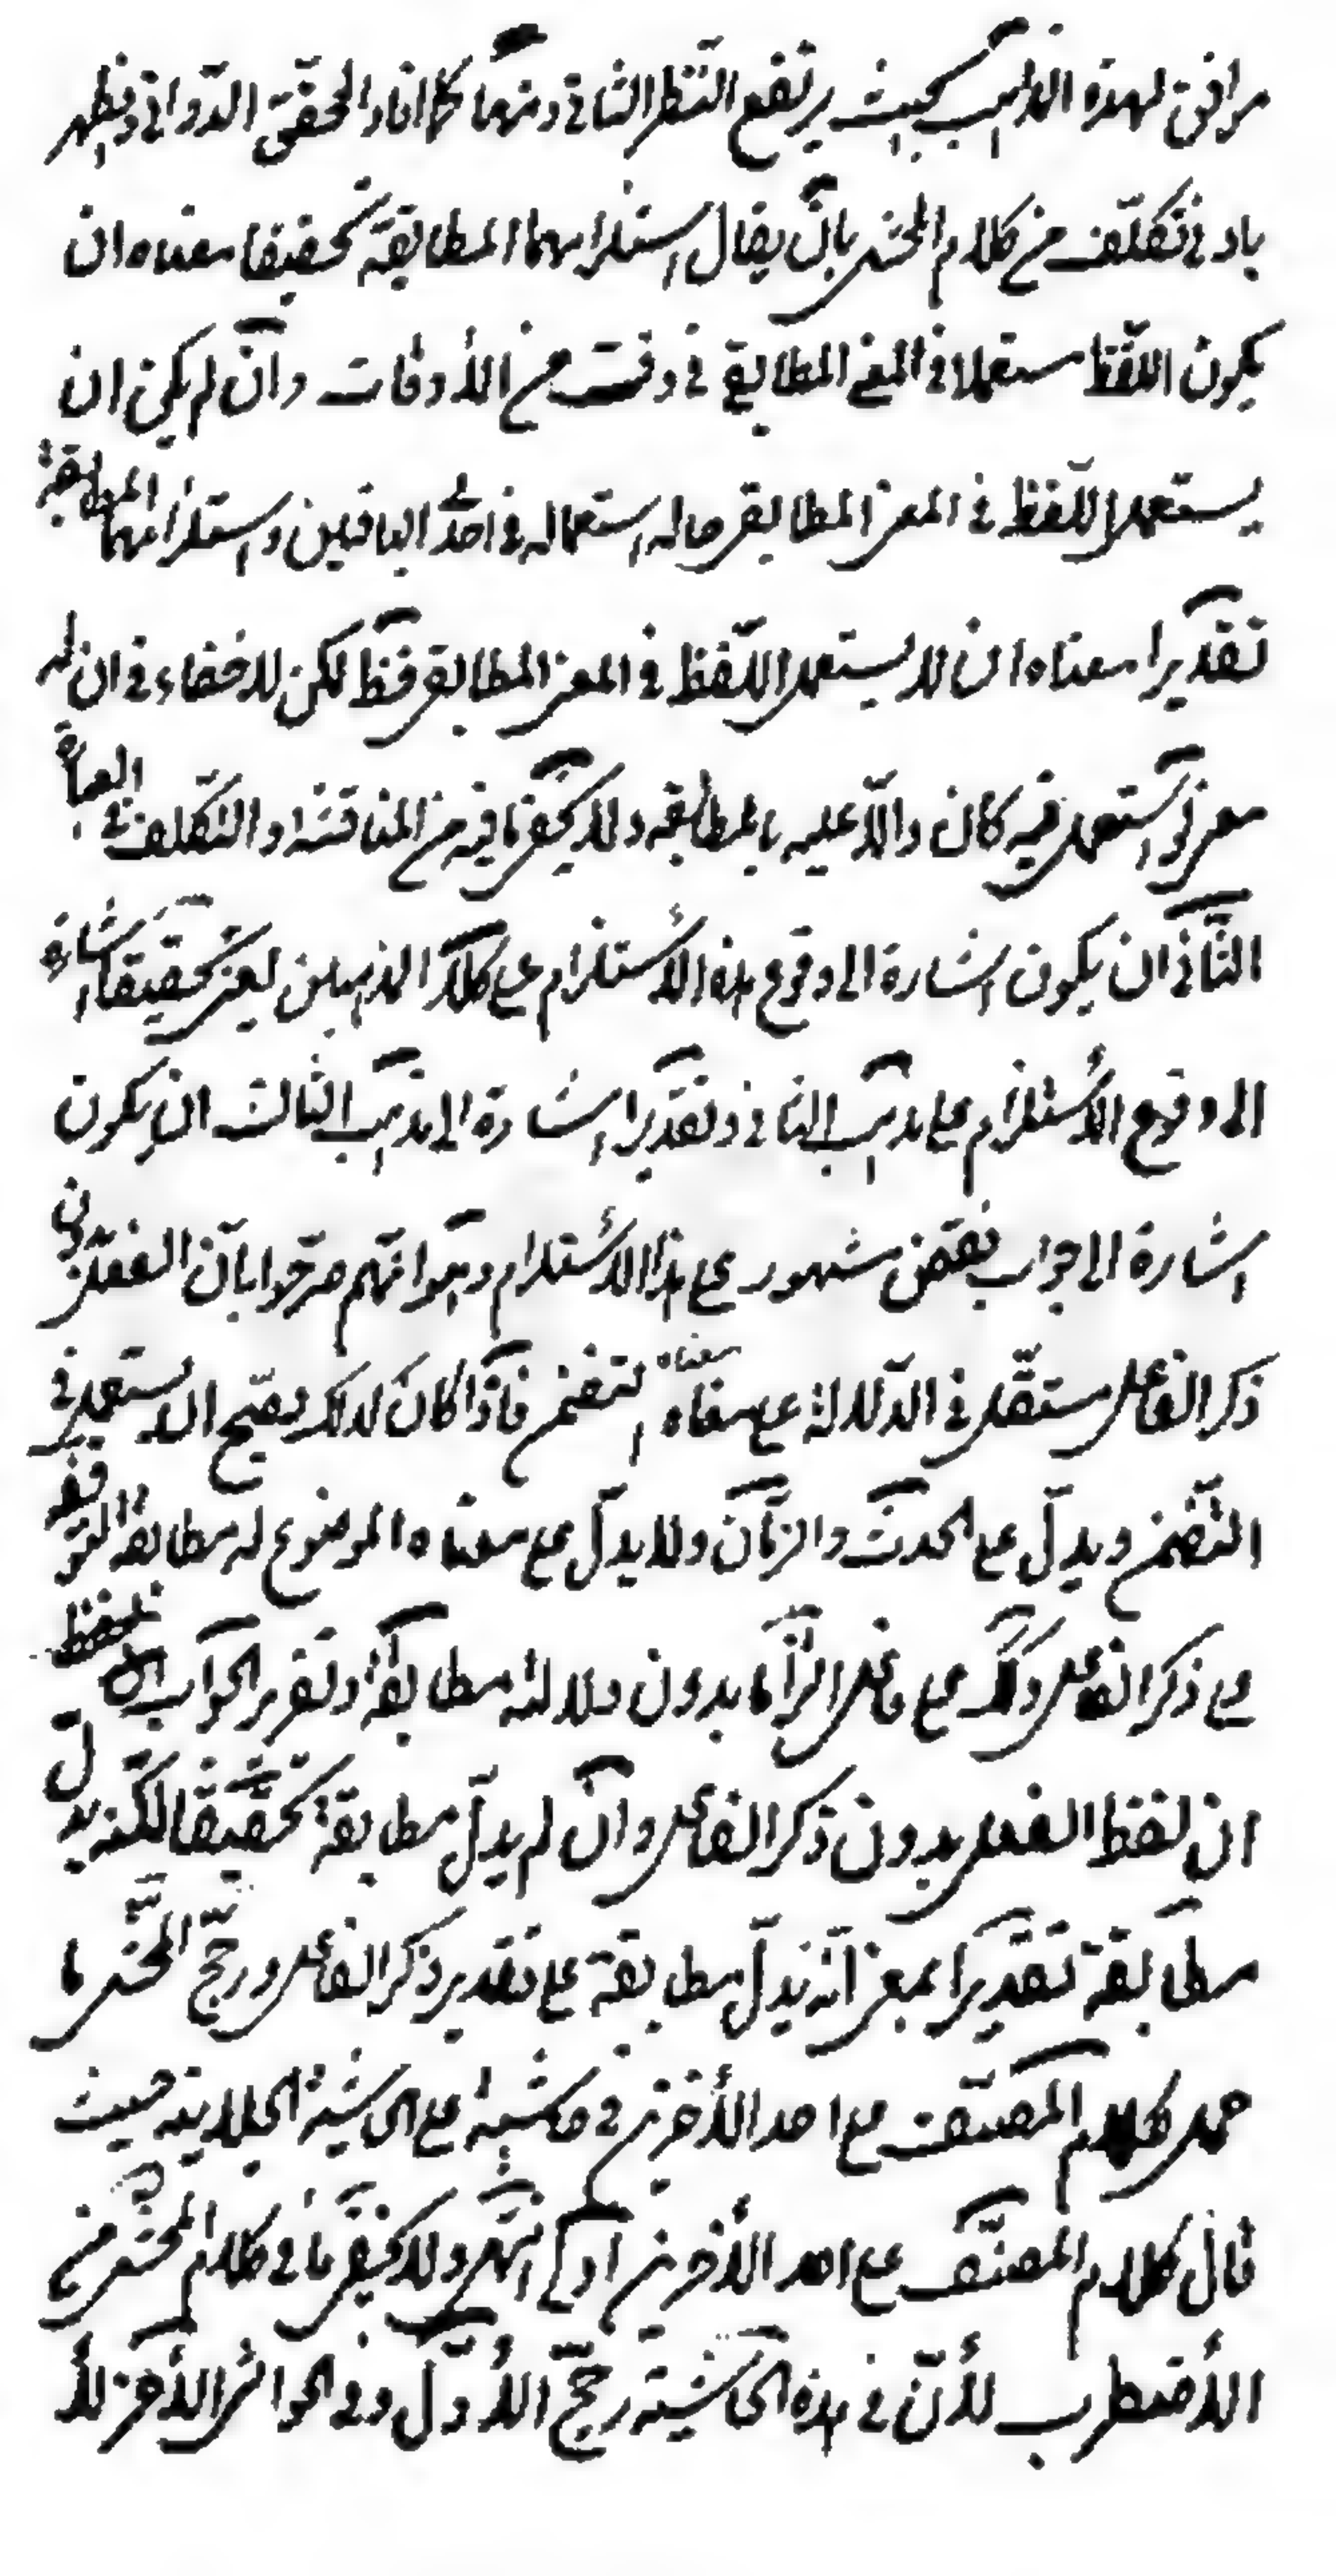 موافق لهذه المذاهب بحيث يرتفع التنظر الثاني ومنها كلما افاد المحقق الدّواني ويظهر
بادنى تكلّف من كلام المحشى بانّ يقال استلزامهما المطابقة تحقيقا معناه ان
يكون اللّفظ مستعملا في المعنى المطابقي في وقت من الأوقات وانّ لم يكن ان
يستعمل اللّفظ في المعنى المطابقى حاله استعماله في احدّ الباقيين واستلزامهما المطابقة
تقديرا معناه ان لا يستعمل اللّفظ في المعنى المطابقى فقط لكن لا خفاء في ان له
معنى لو استعمل فيه كان دالاّ عليه بالمطابقه ولا يخفى ما فيه من المناقشه او التكلف في العبارة
الثّاني ان يكون اشارة الى وقوع هذه الأستلزام على كلا المذهبين يعنى تحقيقا اشارة
الى وقوع الأستلزام على مذهب الثاني وتقديرا اشارة الى مذهب الثالث ان يكون
اشارة الى جواب نقض مشهور على هذا الأستلزام وهو انّهم صرّحوا بانّ الفعل بدون
ذكر الفاعل مستقّل في الدّلالة على معناه معناه التضمنى فاذا كان كذلك فيصّح ان يستعمل في
التّضمنى ويدلّ على الحدث والزمّان ولا يدلّ على معناه الموضوع له مطابقة لتوقفه
على ذكر الفاعل على فاعل بدون دلالته مطابقة وتقرير الجواب
ان لفظ الفعل بدون ذكر الفاعل وانّ لم يدلّ مطابقة تحقيقا لكنّه يدلّ
مطابقة تقديرا بمعنى انّه يدلّ مطابقة على تقدير ذكر الفاعل ورجّح المحّشى ما
حمل كلام المصنّف على احد الأخرين في حاشية على الحاشية الجلالية حيث
قال كلام المصنّف على احد الأخرين انتهى ولا يخفى ما في كلام المحشى من
الأضطرب لأنّ في هذه الحاشية رجّح الأوّل وفي الحواشى الأخرى لأ